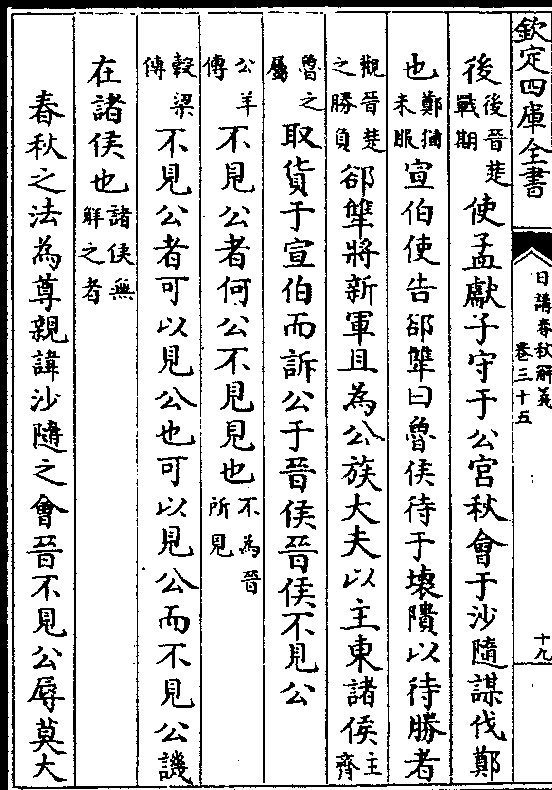 欽定四庫全書
日講春秋解義
卷三十五
十九
後後晉楚戰期使孟獻子守于公宮秋會于沙隨謀伐鄭
也鄭猶未服宣伯使告郤犫曰魯侯待于壞隤以待勝者
觀晉楚之勝負郤犫將新軍且為公族大夫以主東諸侯主齊
魯之屬取貨于宣伯而訴公于晉侯晉侯不見公
公羊傳不見公者何公不見見也不為晉所見
穀梁傳不見公者可以見公也可以見公而不見公譏
在諸侯也諸侯無解之者
春秋之法為尊親諱沙隨之會晉不見公辱莫大